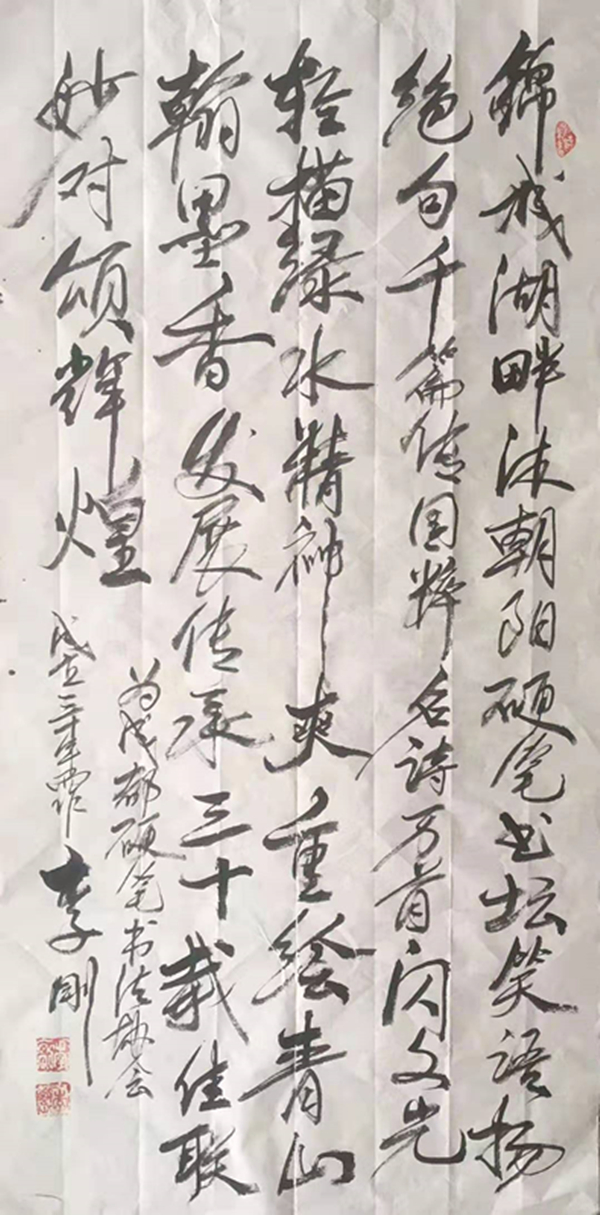 锦城湖畔沐朝阳硬笔书坛笑语扬
绝句千篇传国粹名诗万首闪文光
轻描绿水精神爽重绘青山
翰墨香发展传承三十载佳联
妙对颂辉煌
为成都硬笔书法协会
成立三十年作 李刚